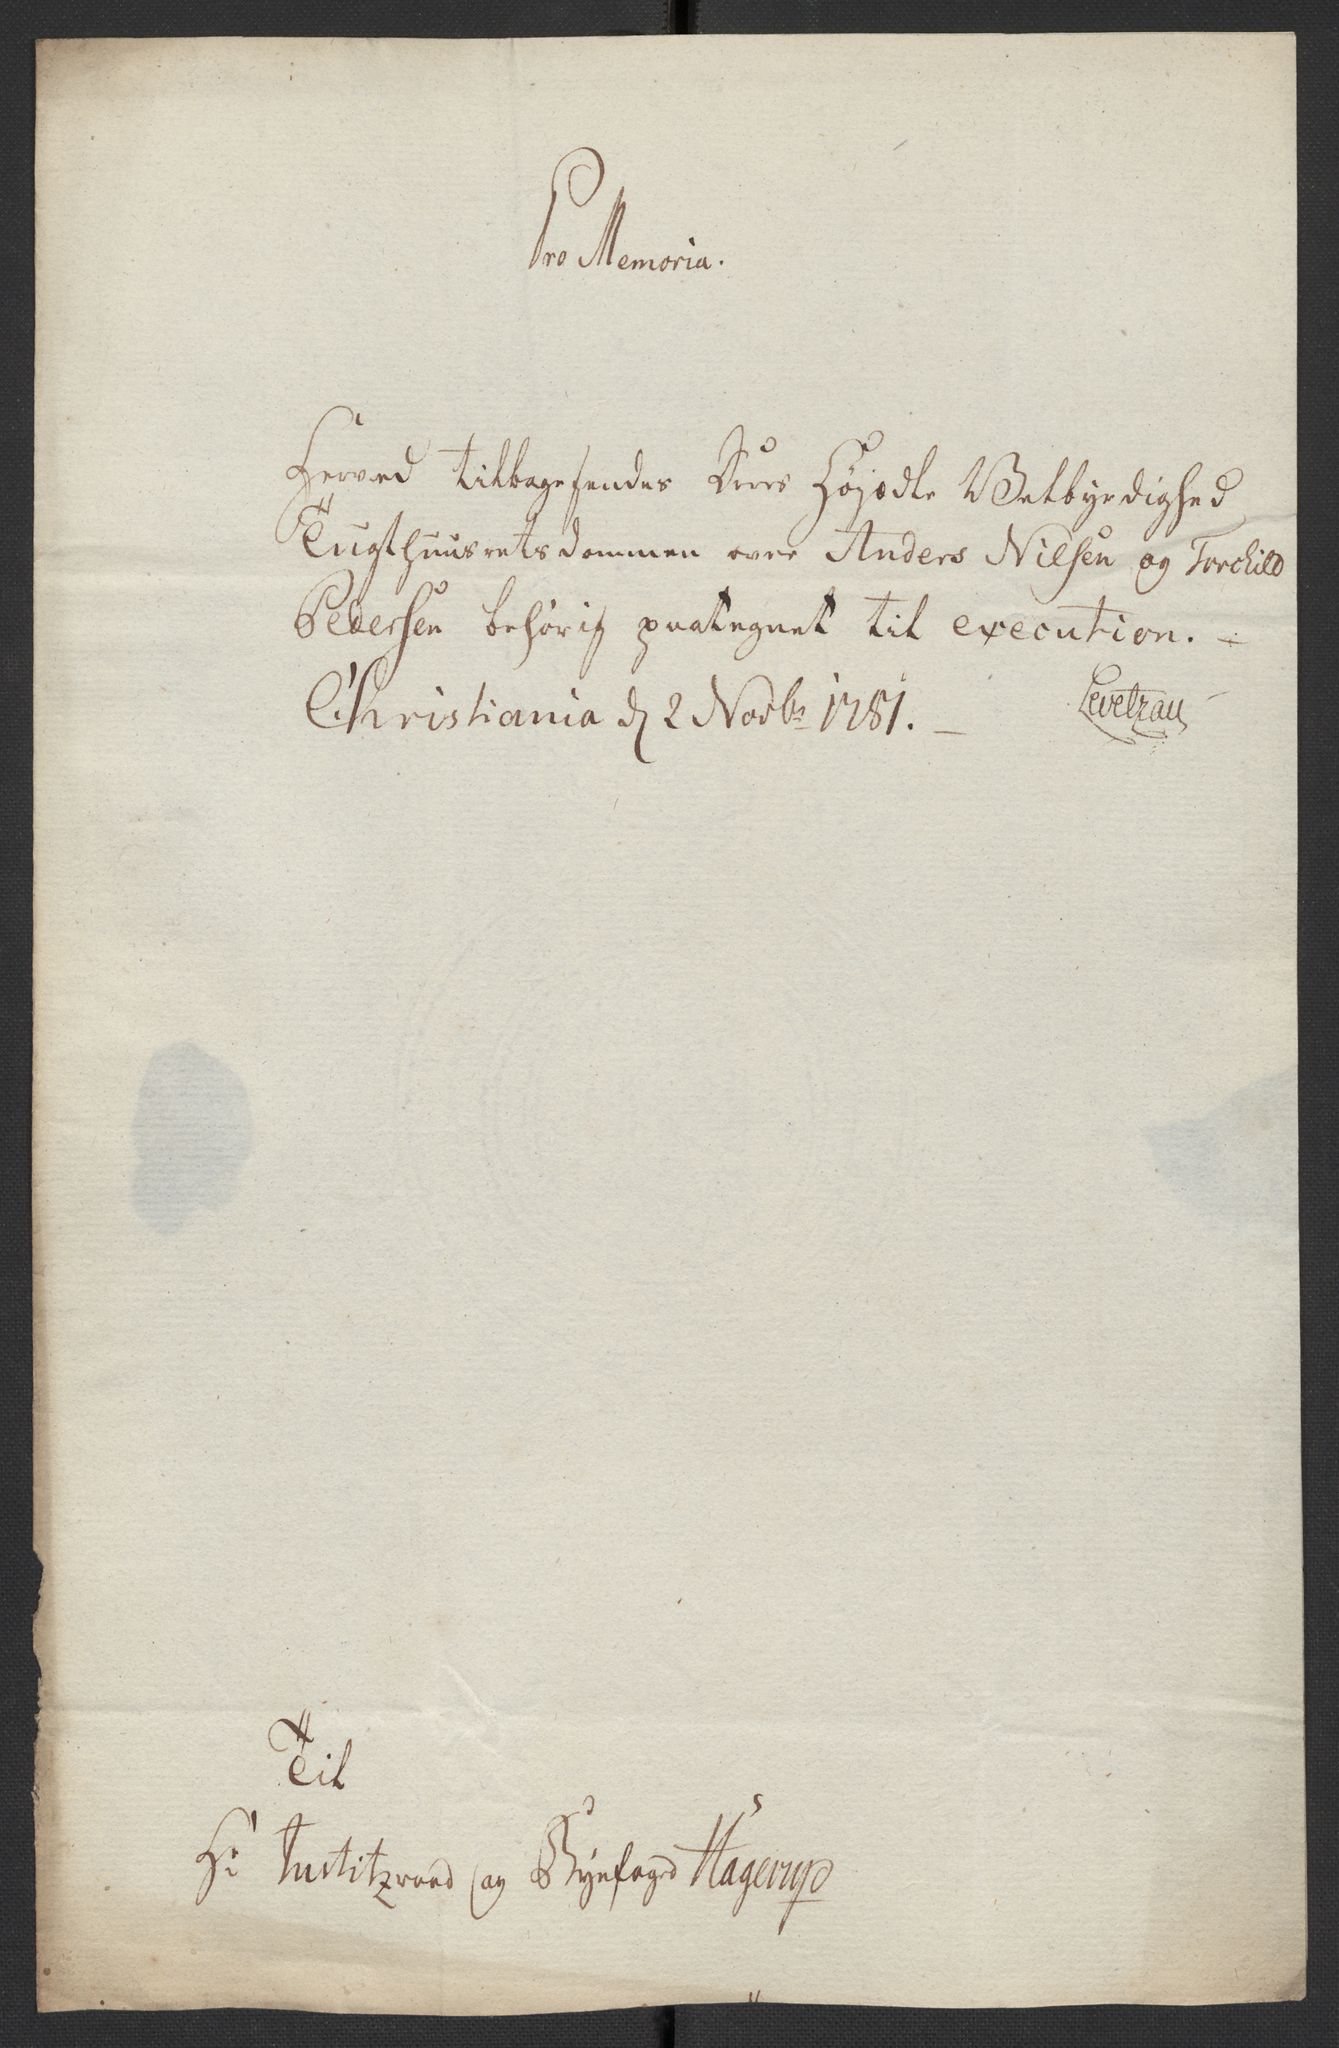 Pro Memoria.
Herved tilbagesendes Deres Højædle Velbyrdighed
Tugthuusretsdommen over Anders Nilsen og Torchild
Pedersen behørig paategnet til execution. -
Christiania d 2 Novbr 1781. -
Levetzau
Til
Hr Justitzraad og Byefoged Hagerup